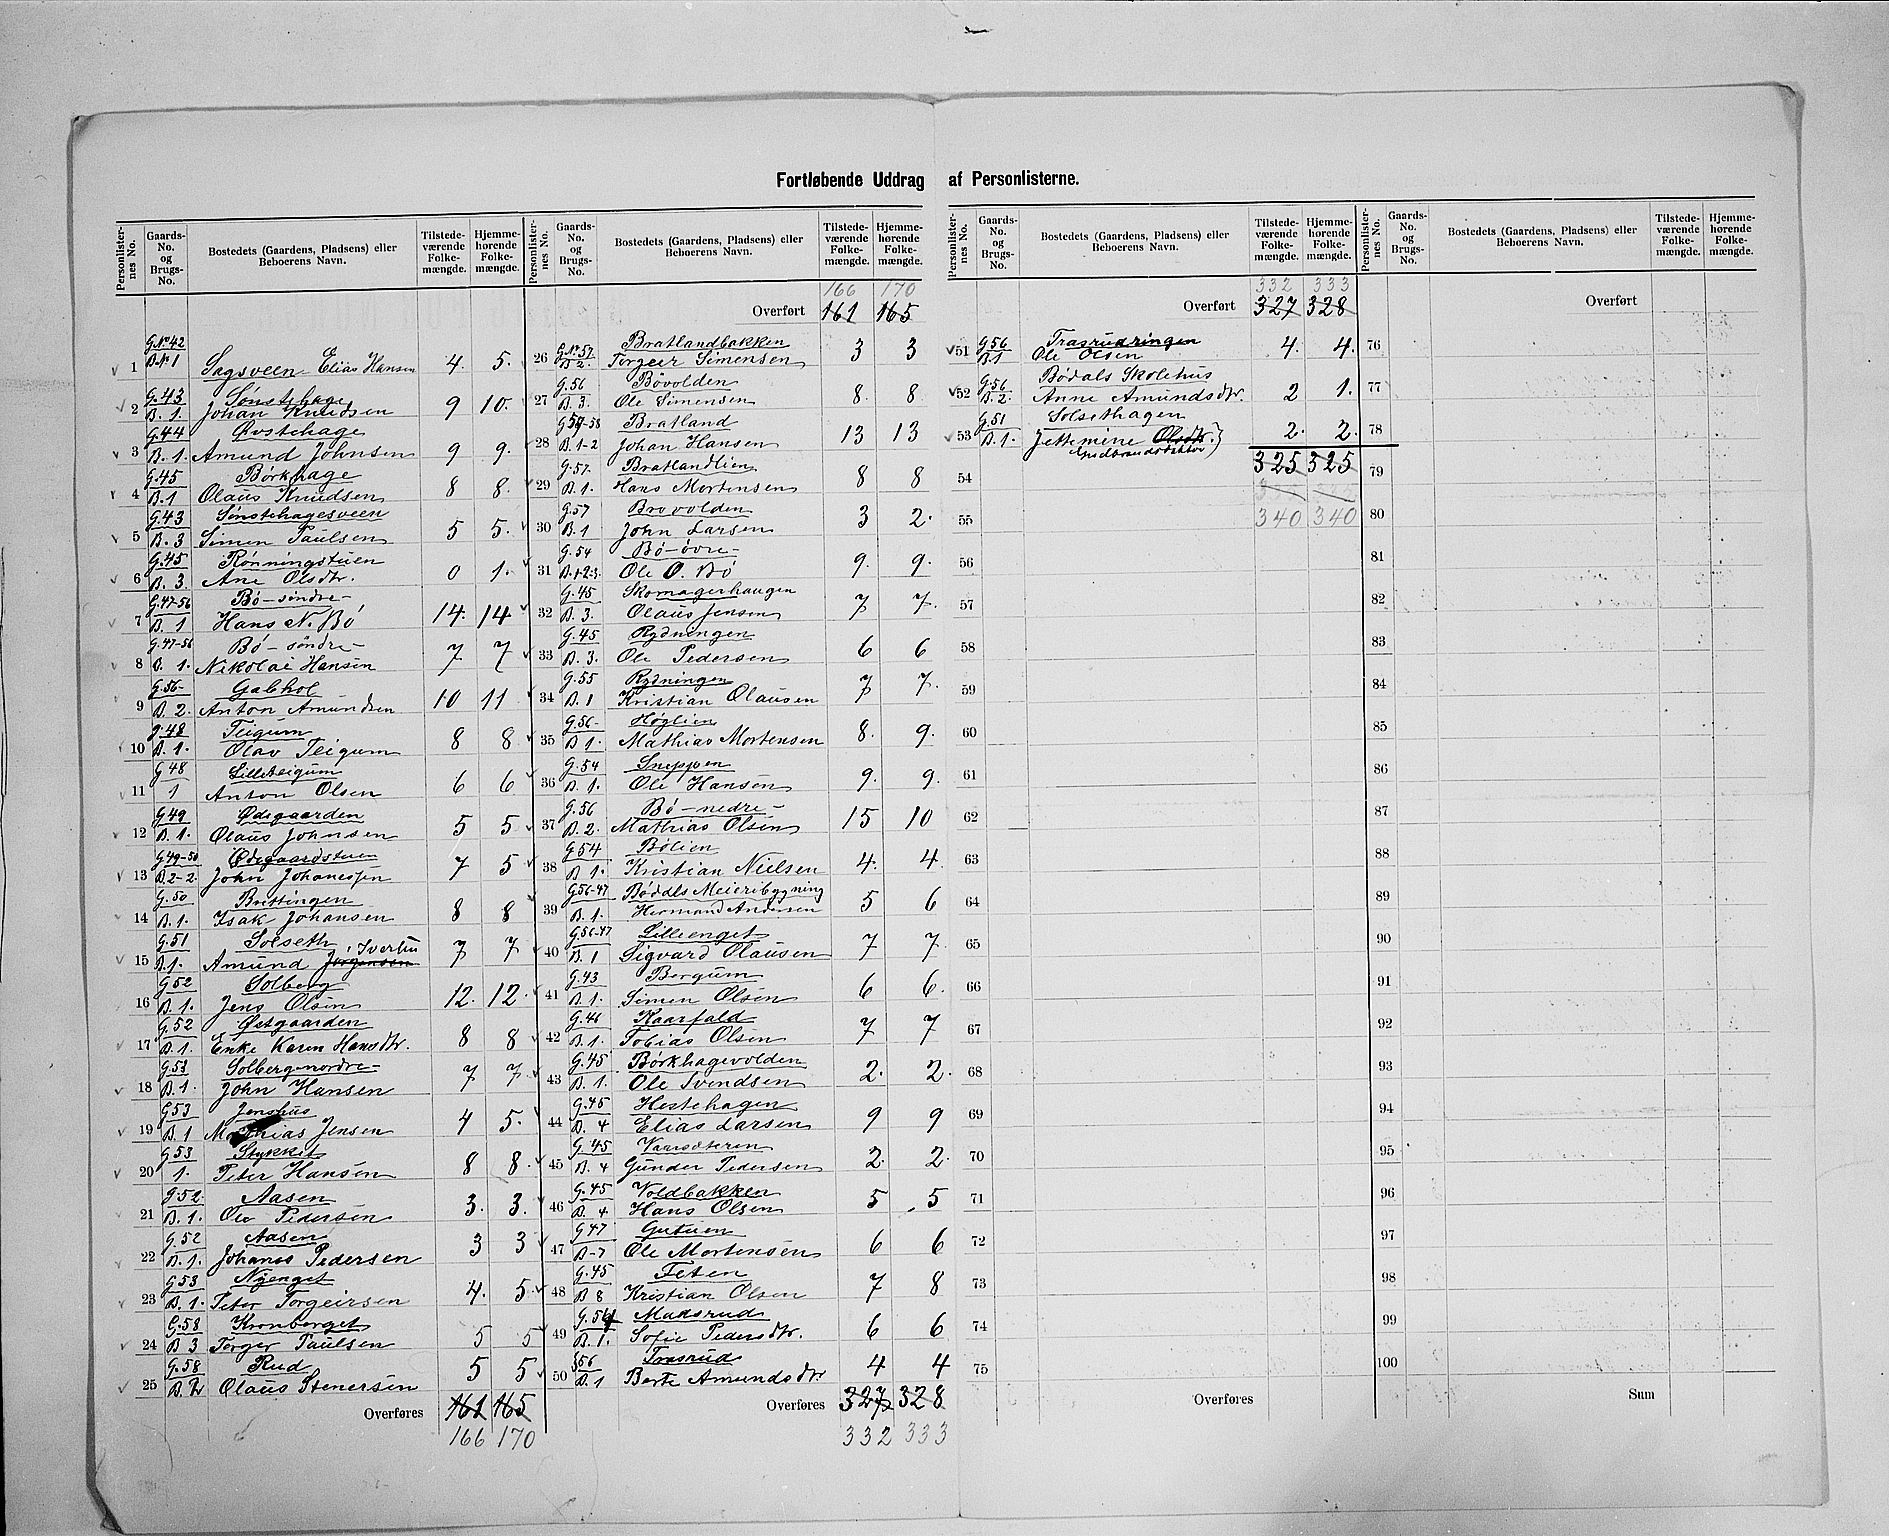 Fortløbende Uddrag af Personlisterne.
Personlister-nes No.
Gaards-No. og Brugs-No.
Bostedets (Gaardens, Pladsens) eller Beboerens Navn.
Tilstede-værende Folke-mængde.
Hjemme-hørende Folke-mængde.
G.No.42
1 B.No.1 Sagsveen Elias Hansen 4. 5.
G.43 Sønstehage
2 B.1. Johan Knudsen 9 10.
G.44 Øvstehage
3 B.1. Amund Johnsen 9 9.
G.45 Børkhage
4 B.1 Olaus Knudsen 8 8.
G.43 Sønstehagesveen
5 B.3 Simen Paulsen 5 5.
G.45 Rønningstuen
6 B.3. Ane Olsdtr. 0 1.
G.47-56 Bø-søndre-
7 B.1 Hans N. Bø 14. 14
G.47-56 Bø-søndre-
8 B.1. Nikolai Hansen 7 7
G.56- Gabhol
9 B.2. Anton Amundsen 10 11
G.48 Teigum
10 B.1. Olav Teigum 8 8
G.48 Lilleteigum
11 1 Anton Olsen 6 6
G.49 Ødegaarden
12 B.1. Olaus Johnsen 5 5
G.49-50 Ødegaardstuen
13 B.2-2. John Johanesen 7 5
G.50 Brettingen
14 B.1. Isak Johansen 8 8
G.51 Solseth
15 B.1. Amund Jørgensen Iversen 7 7
G.52 Solberg
16 B.1. Jens Olsen 12. 12.
G.52 Østgaarden
17 B.1. Enke Karen Hansdtr. 8 8
G.53 Solberg-nordre-
18 B.1. John Hansen 7 7
G.53 Jenshus
19 B.1 Mathias Jensen 4 5.
G.53 Stykket
20 1. Peter Hansen 8 8.
G.52 Aasen
21 B.1. Ole Pedersen 3. 3.
G.52 Aasen
22 B.1. Johanes Pedersen 3 3
G.53 Nyenget
23 B.1. Peter Torgeirsen 4. 5.
G.58 Kronberget
24 B 3 Torger Paulsen 5 5
G.58 Rud
25 B.2 Olaus Stenersen 5 5
Overføres 161 165
166 170
Personlister-nes No.
Gaards-No. og Brugs-No.
Bostedets (Gaardens, Pladsens) eller Beboerens Navn.
Tilstede-værende Folke-mængde.
Hjemme-hørende Folke-mængde.
166 170
Overført 161 165
G.No.57 Bratlandbakken
26 B 2. Torgeer Simensen 3 3
G.56 Bøvolden
27 B.3. Ole Simensen 8 8
G.57-58 Bratland
28 B.1-2 Johan Hansen 13 13
G.57. Bratlandlien
29 B.1. Hans Mortensen 8 8
G.57 Brovolden
30 B.1 John Larsen 3 2.
G.54 Bø-øvre-
31 B.1-2-3. Ole O. Bø 9. 9.
G.45 Skomagerhaugen
32 B.3. Olaus Jensen 7 7.
G.45 Rydningen
33 B.3. Ole Pedersen 6 6
G.55 Rydningen
34 B.1 Kristian Olausen 7 7.
G.56- Høglien
35 B 1. Mathias Mortensen 8. 9.
G.54 Sneppen
36 B.1. Ole Hansen 9. 9.
G.56 Bø-nedre-
37 B.2. Mathias Olsen 15 10
G.54 Bølien
38 B 1. Kristian Nielsen 4. 4
G.56-47 Bødals Meieribygning
39 B.1. Hermand Andersen 5 6
G.56-47 Lillienget
40 B.1 Sigvard Olausen 7 7.
G.43 Bergum
41 B.1. Simen Olsen 6 6.
G.46 Kaarfald
42 B.1. Tobias Olsen 7 7
G.45 Børkhagevolden
43 B.1. Ole Svendsen 2. 2.
G.45 Hestehagen
44 B.4 Elias Larsen 9 9
G.45 Vaarsæteren
45 B.4 Gunder Pedersen 2. 2.
G.45 Voldbakken
46 B.4 Hans Olsen 5 5
G.47 Gutuen
47 B-7 Ole Mortensen 6 6
G.45 Feten
48 B 8 Kristian Olsen 7 8
G.54 Maasrud
49 B.1. Sofie Pedersdtr. 6 6
56 Trasrud
50 B.1 Berte Amundsdtr 4 4
Overføres 327 328
332 333
Personlister-nes No.
Gaards-No. og Brugs-No.
Bostedets (Gaardens, Pladsens) eller Beboerens Navn.
Tilstede-værende Folke-mængde.
Hjemme-hørende Folke-mængde.
332 333
Overført 327 328
G.56 Trasrudringen
51 B.1 Ole Olsen 4. 4.
G.56 Bødals Skolehus
52 B.2. Anne Amundsdtr. 2 1.
G.51 Solsethagen
53 B.1. Jettemine Olsdtr. 2. 2.
Gudbrandsdatter
54 325 325
55 340 340
56
57
58
59
60
61
62
63
64
65
66
67
68
69
70
71
72
73
74
75
Overføres
Personlister-nes No.
Gaards-No. og Brugs-No.
Bostedets (Gaardens, Pladsens) eller Beboerens Navn.
Tilstede-værende Folke-mængde.
Hjemme-hørende Folke-mængde.
Overført
76
77
78
79
80
81
82
83
84
85
86
87
88
89
90
91
92
93
94
95
96
97
98
99
100
Sum